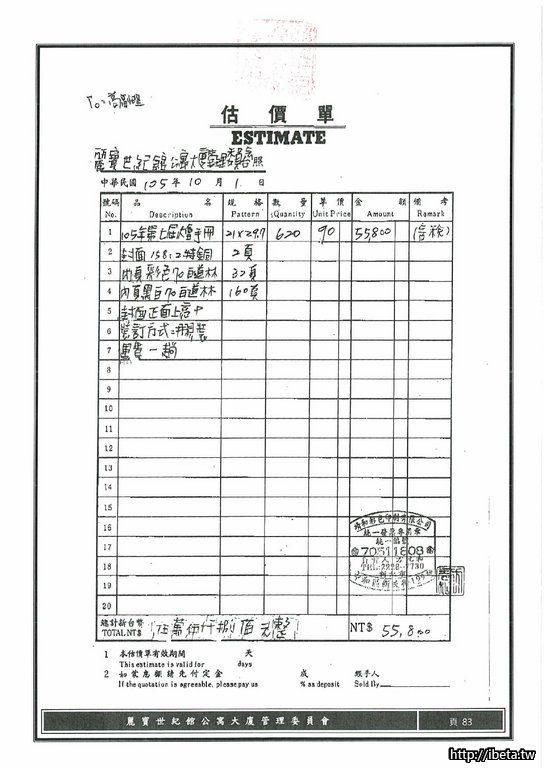 To: 高副理
估價單
ESTIMATE
麗寶世紀館公寓大廈管理委員會 台照
中華民國 105 年 10 月 1 日
號碼 品名 規格 數量 單價 金額 備考
No. Description Pattern Quantity Unit Price Amount Remark
1 105年第七屆大會手冊 21×29.7 620 90 55800 (含稅)
2 封面 158:2特銅 2頁
3 內頁彩色70百道林 32頁
4 內頁黑白70百道林 160頁
5 封面正面上亮P
6 裝訂方式:膠裝
7 一趟
8
9
10
11
12
13
14
15
16
17
18
19
20
統一發票專用章
統一編號
70511808
總計新台幣 伍萬伍仟捌佰元整 NT$ 55,800
TOTAL NT$
1 本估價單有效期間 天
This estimate is valid for days
2 如蒙惠顧請先付定金 成 經手人
If the quotation is agreeable, please pay us % as deposit Sold By
麗寶世紀館公寓大廈管理委員會 頁 83
http://ibeta.tw